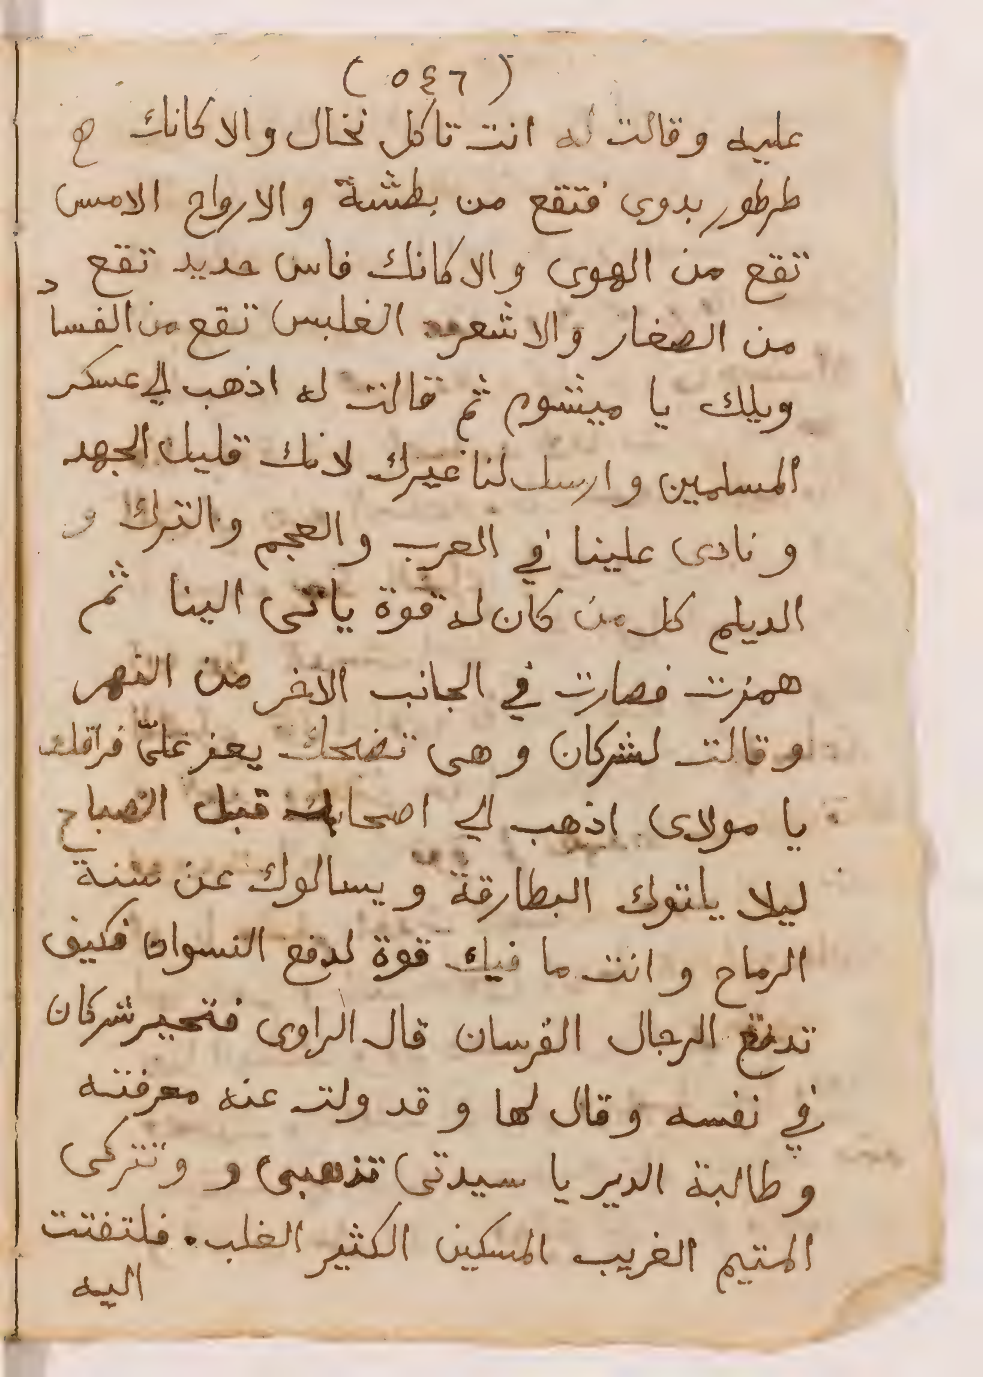 (٥٤٦)
عليه وقالت له انت تاكل نخال والا كانك
طرطور بدوى فتقع من بطشة والارواح الامس
تقع من الهوى والا كانك فاس حديد تقع
من الصغار والا شعر الغلبس تقع من الفساد
ويلك يا ميشوم ثم قالت له اذهب الي عسكر
المسلمين وارسل لنا غيرك لانك قليل الجهد
ونادى علينا في العرب والعجم والترك و
الديلم كل من كان له قوة ياتى الينا ثم
همزت فصارت في الجانب الاخر من النهر
وقالت لشركان وهى تضحك يعز عليّ فراقك
يا مولاى اذهب الي اصحابك قبل الصباح
ليلا يلتوك البطارقة ويسالوك عن سنة
الرماح وانت ما فيك قوة لدفع النسوان فكيف
تدفع الرجال الفرسان قال الراوى فتحير شركان
في نفسه وقال لها وقد ولت عنه معرفته
وطالبة الدير يا سيدتى تذهبى و وتتركى
المتيم الغريب المسكين الكثير الغلب. فلتفتت
اليه